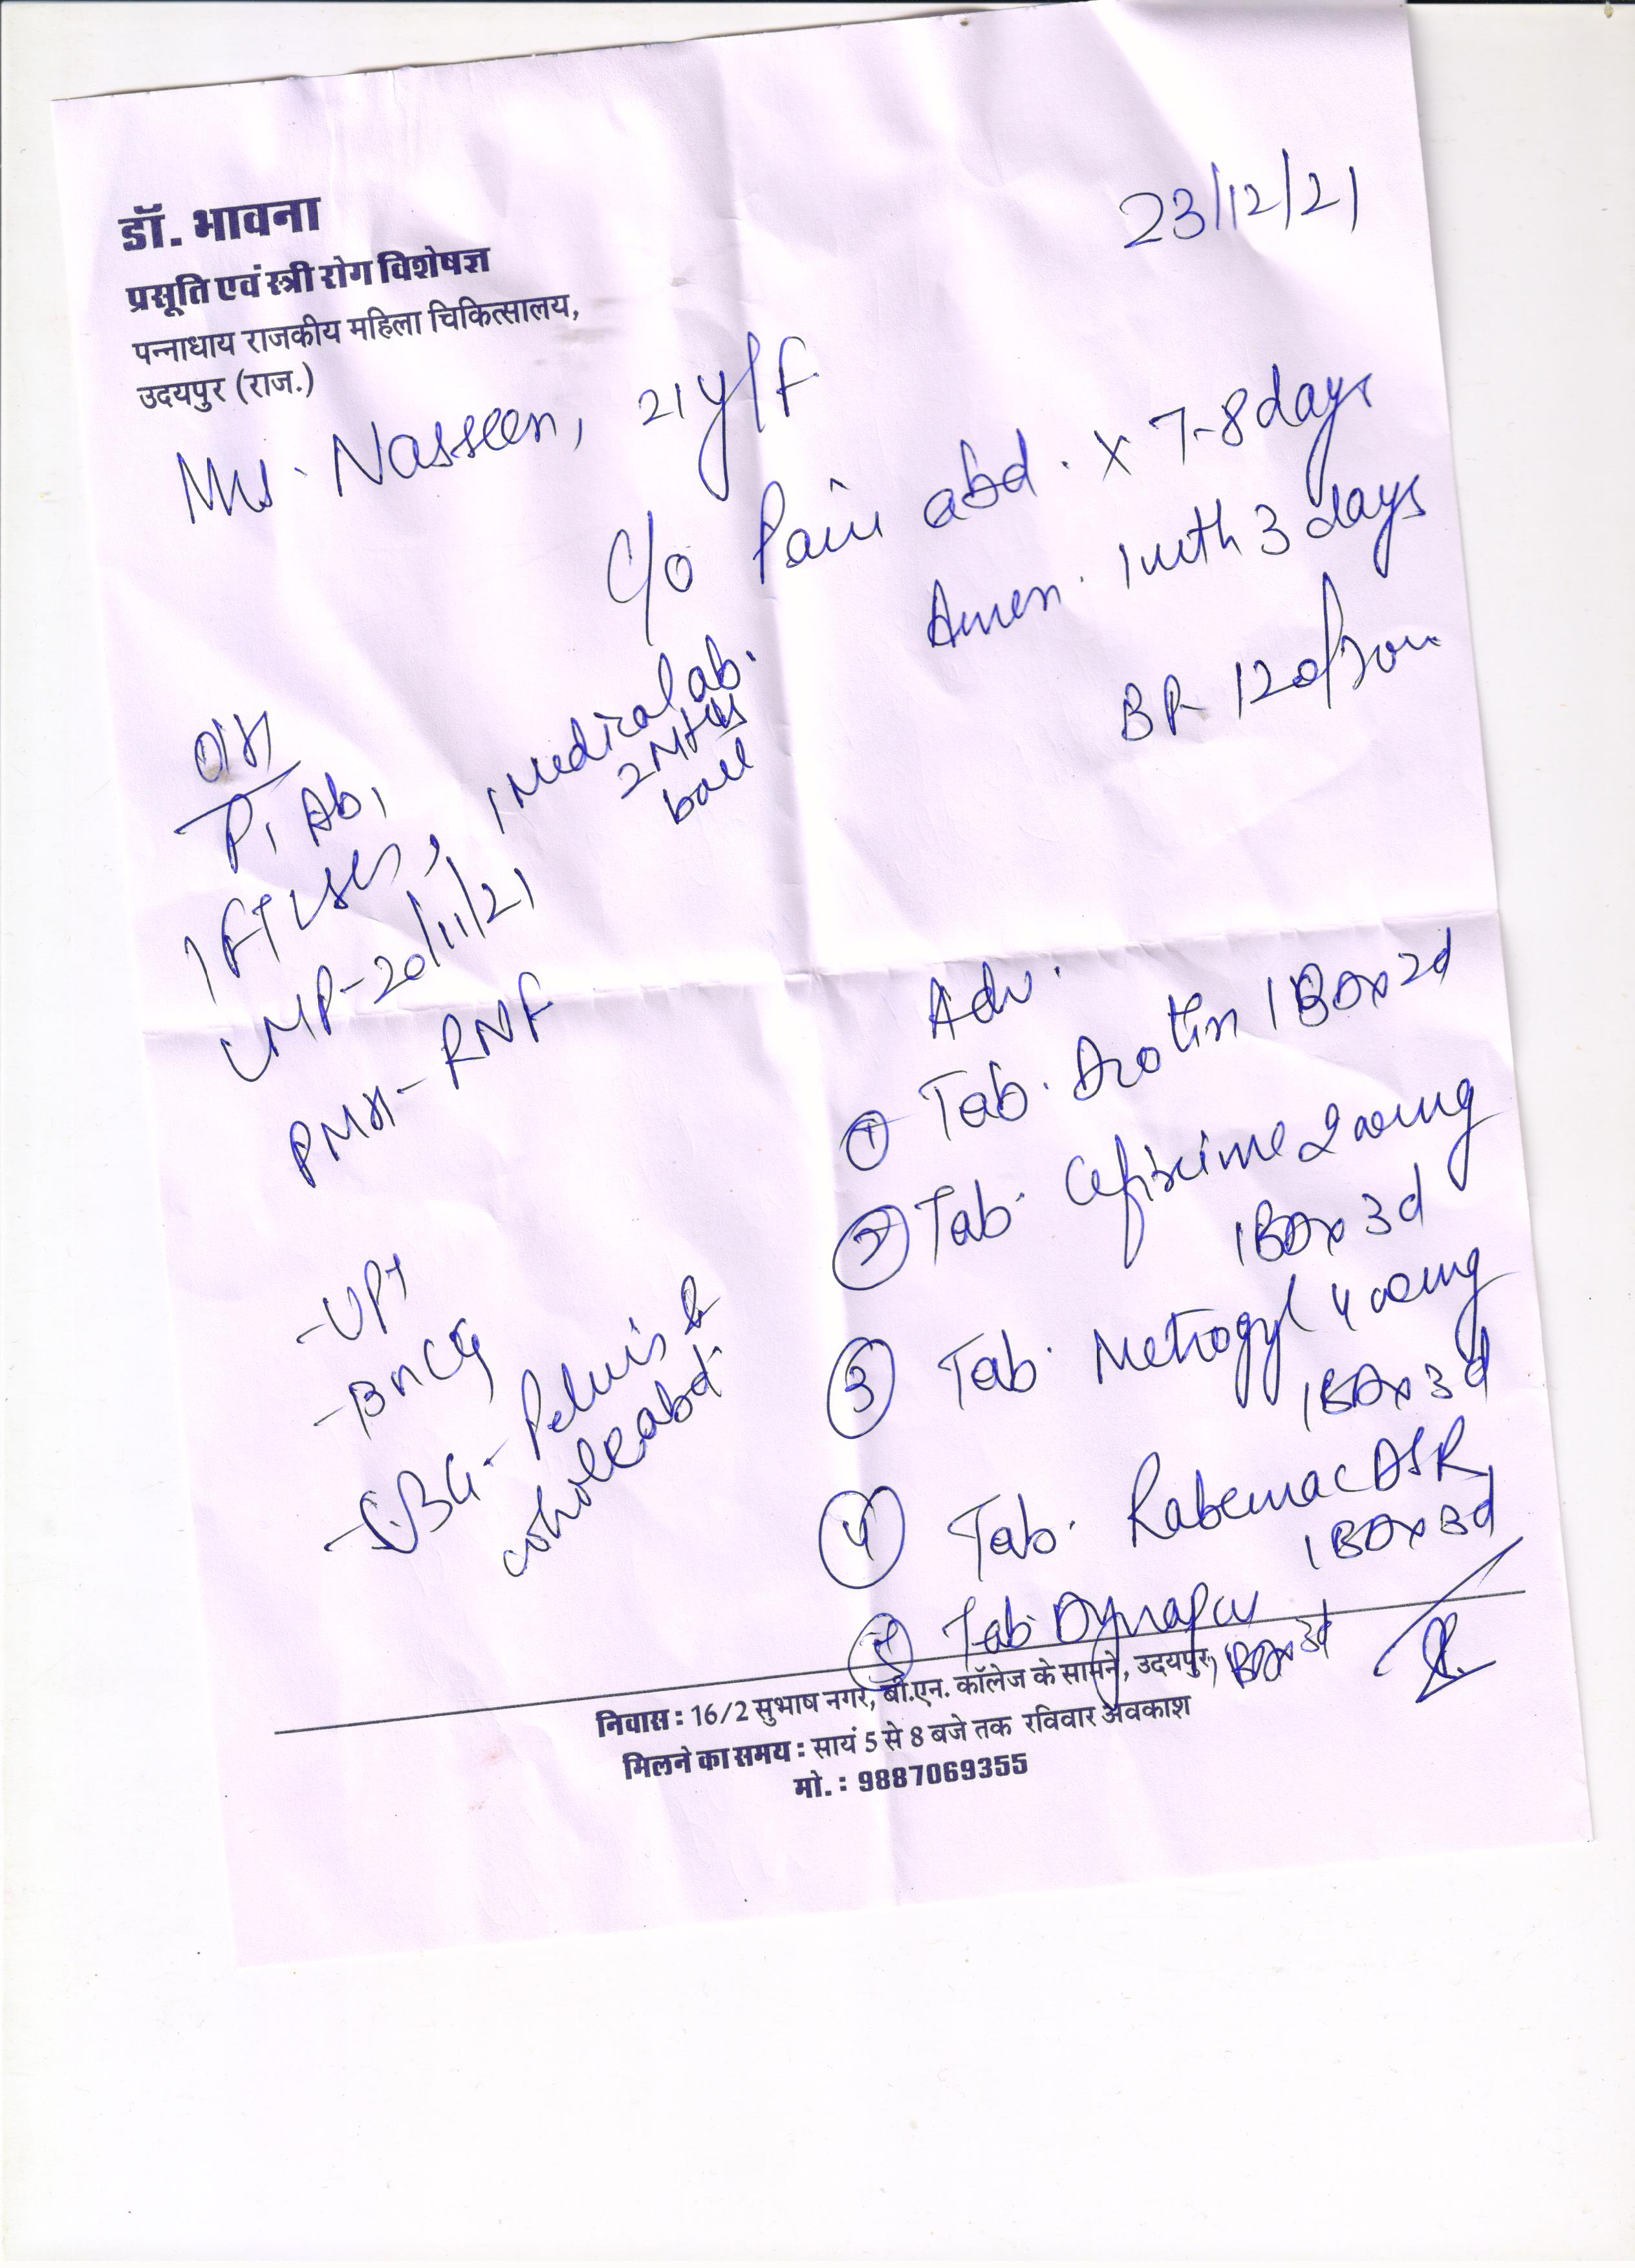 23/12/21
डॉ. भावना
प्रसूति एवं स्त्री रोग विशेषज्ञ
पन्नाधाय राजकीय महिला चिकित्सालय,
उदयपुर (राज.)
Mrs. Nasseen, 21y/F
C/o Pain abd. x 7-8 days
Amen. 1 mth 3 days
BP- 120/
O/H
P1 Ab1
1 FT , 1 Medical ab.
2 Mths
back
LMP-20/11/21
PMH- RNF
Adv.
① Tab. 1 BD x 2d
② Tab. Cefixime 200mg
1 BD x 3d
③ Tab. Metrogyl 400mg
1 BD x 3d
④ Tab. Rabemac DSR
1 BD x 3d
⑤ Tab. Dynapar 1 BD x 3d
- UPT
- BHCG
- USG - Pelvis &
whole abd.
निवास : 16/2 सुभाष नगर, बी.एन. कॉलेज के सामने, उदयपुर
मिलने का समय : सायं 5 से 8 बजे तक रविवार अवकाश
मो. : 9887069355